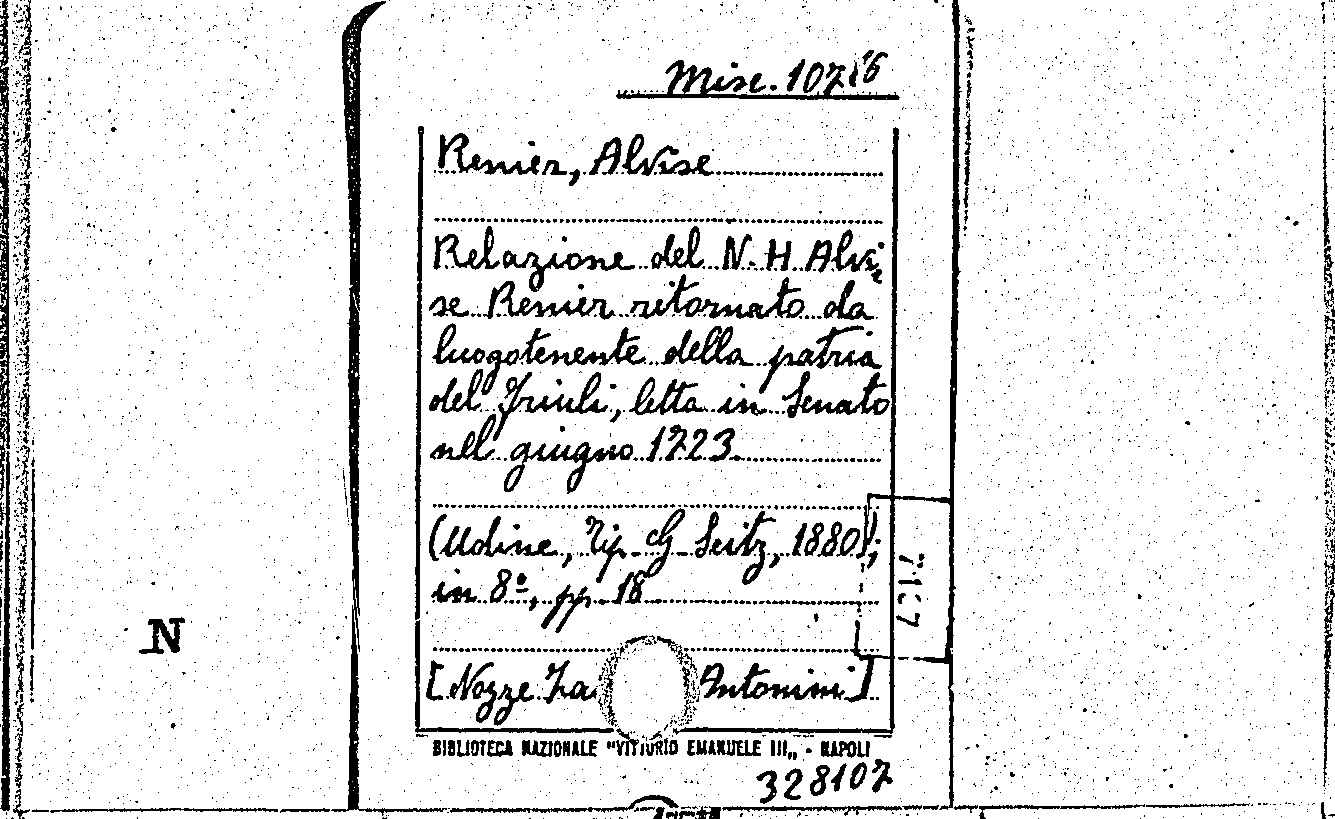 Misc. 107 16
Renier, Alvise
Relazione del N. H. Alvi-
se Renier ritornato da
luogotenente della patria
del Friuli, letta in Senato
nel giugno 1723.
(Udine, Tip. G. Seitz, 1880);
in 8º, pp. 18
7167
N
[Nozze Antonini]
BIBLIOTECA NAZIONALE "VITTORIO EMANUELE III„ - NAPOLI
328107